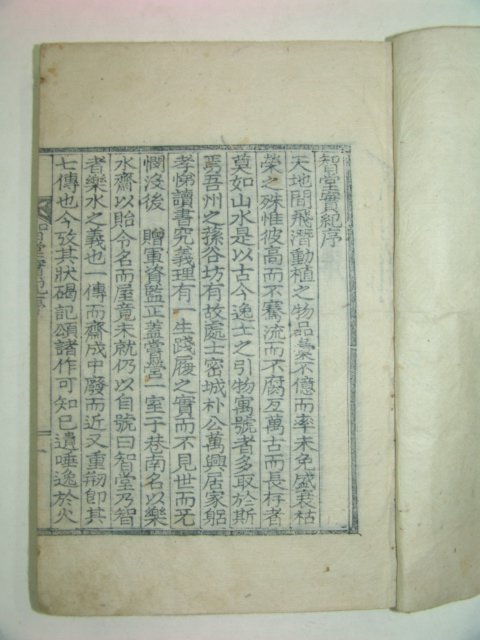 智堂實紀序
天地間飛潛動植之物品彙不億而率未免盛衰枯
榮之殊惟彼高而不騫流而不腐亙萬古而長存者
莫如山水是以古今逸士之引物寓號者多取於斯
焉吾州之孫谷坊有故處士密城朴公萬興居家躬
孝悌讀書究義理有一生踐履之實而不見世而无
憫沒後 贈軍資監正盖嘗營一室于巷南名以樂
水齋以貽令名而屋竟未就仍以自號曰智堂乃智
者樂水之義也一傳而齋成中廢而近又重刱卽其
七傳也今攷其狀碣記頌諸作可知已遺唾逸於火
智堂實紀序